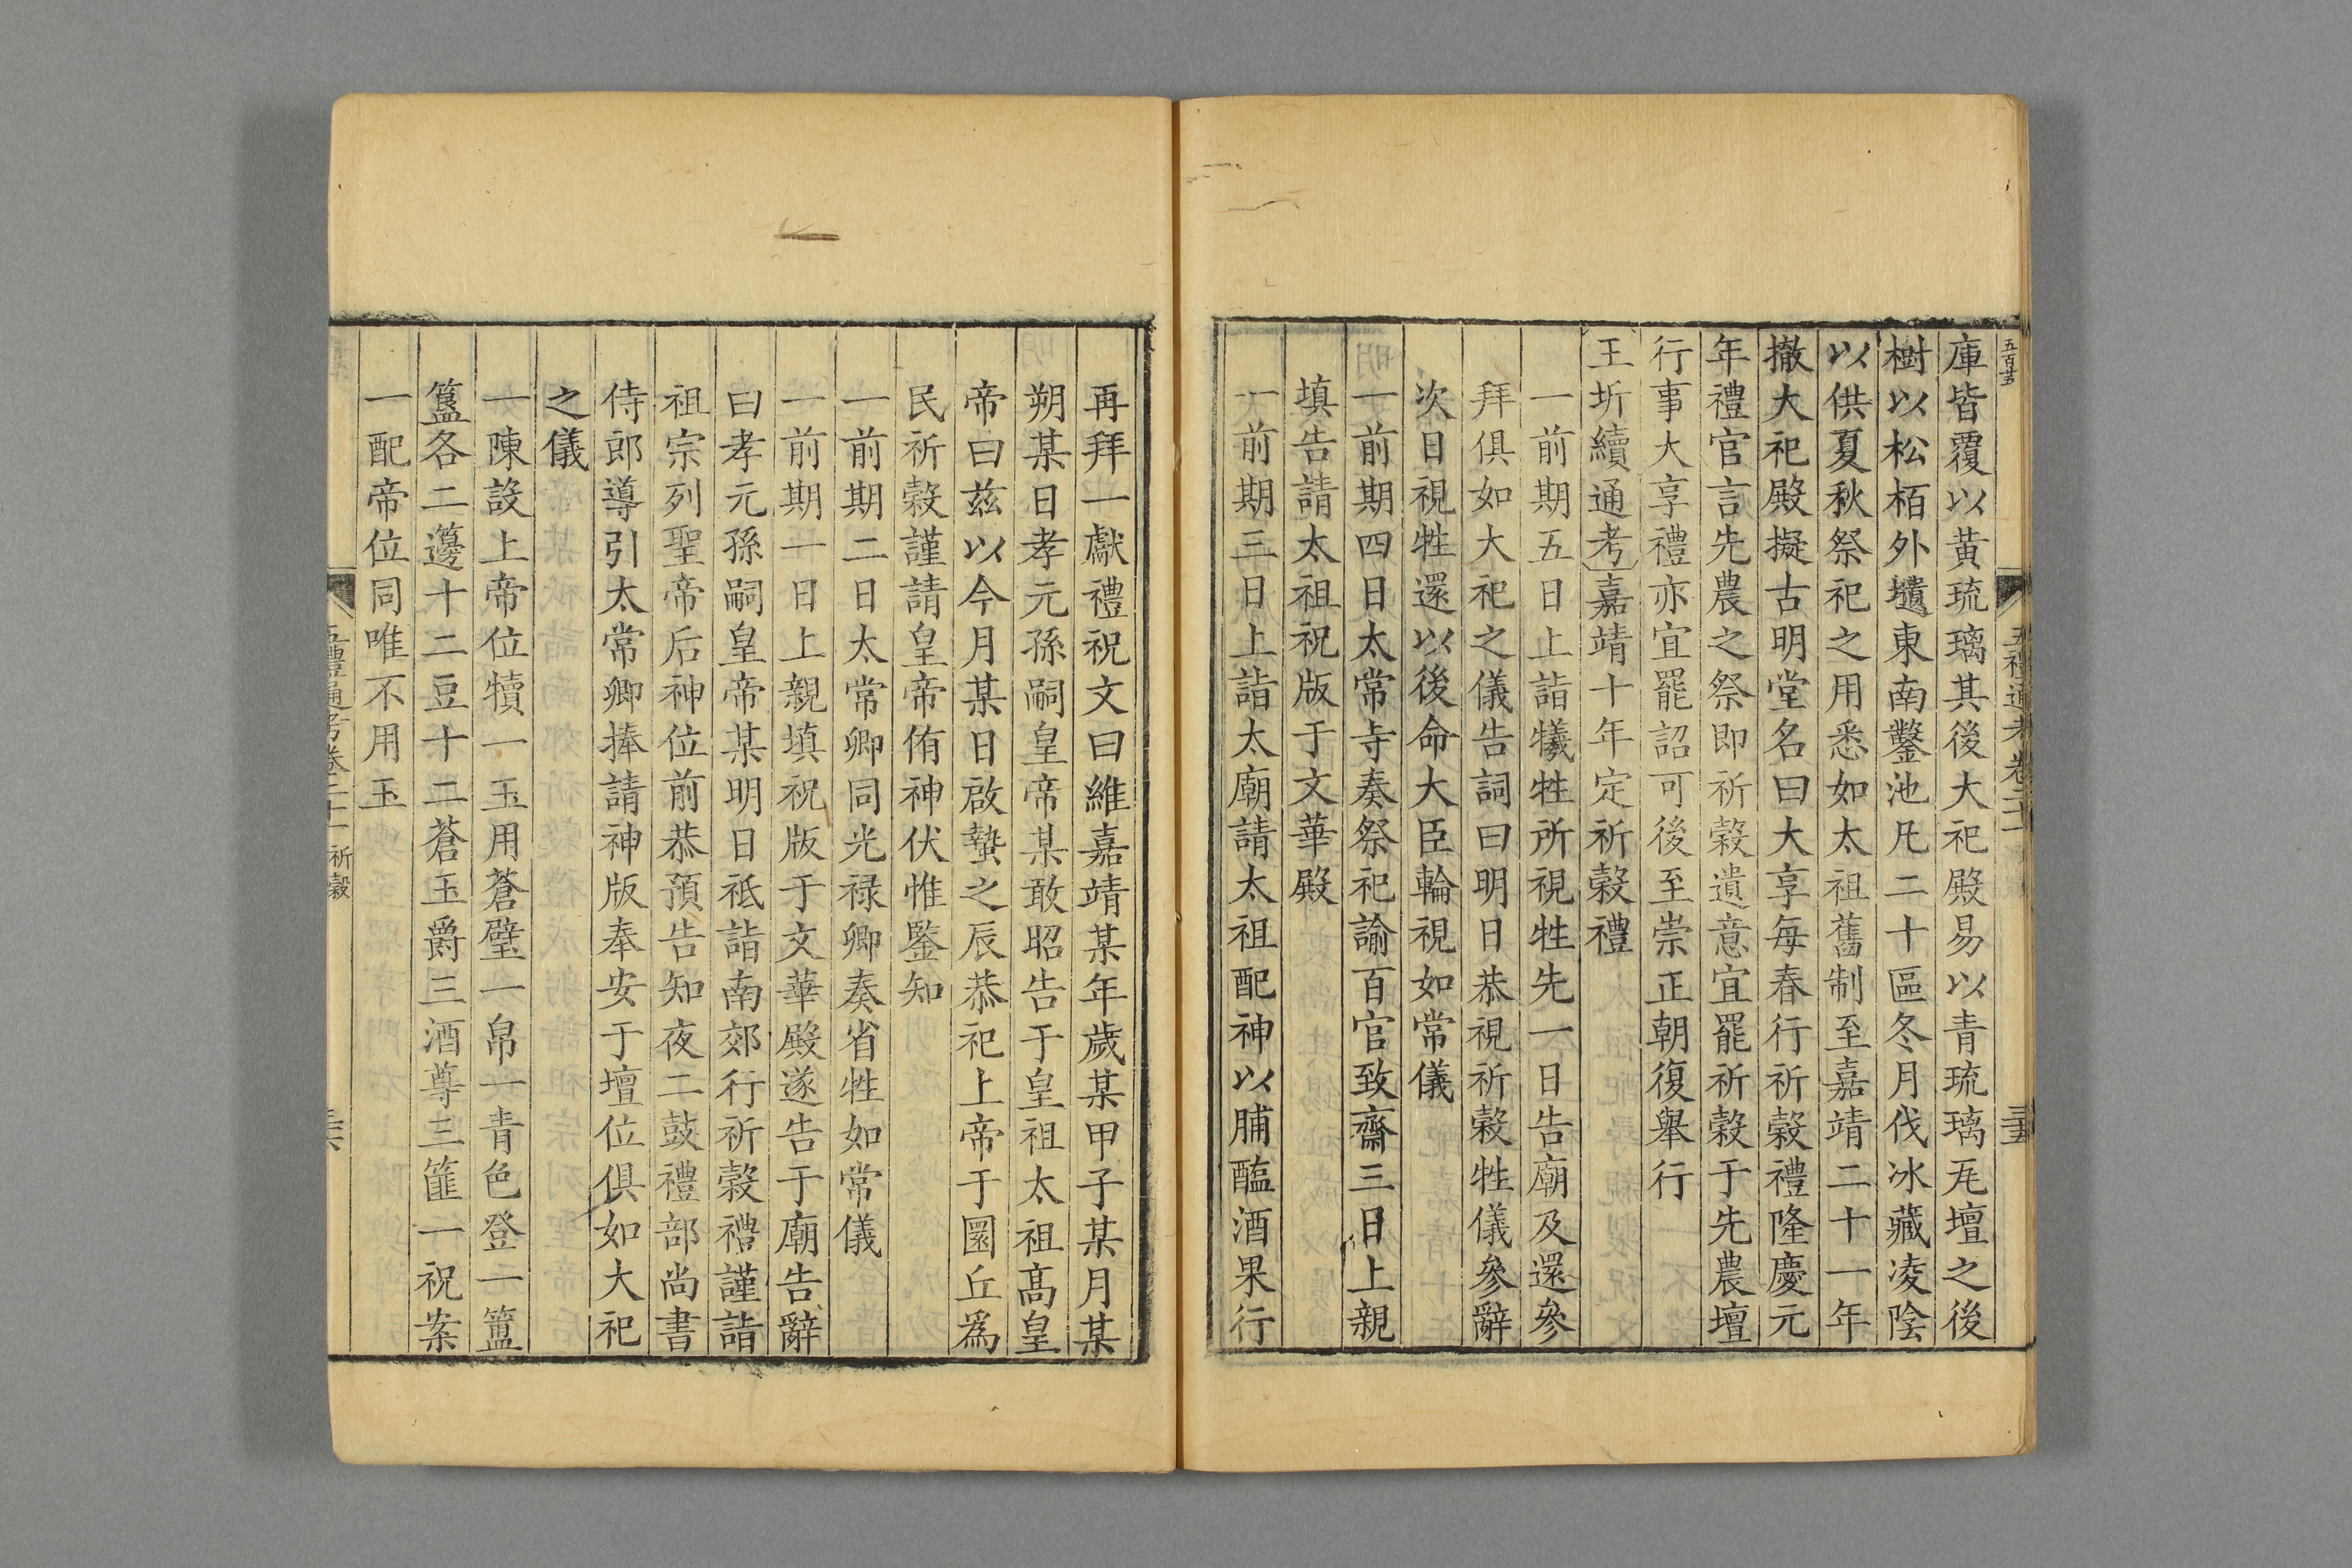 庫皆覆以黃琉璃其後大祀殿易以青琉璃瓦壇之後
樹以松栢外壝東南鑿池凡二十區冬月伐冰藏凌陰
以供夏秋祭祀之用悉如太祖舊制至嘉靖二十一年
撤大祀殿擬古明堂名曰大享每春行祈穀禮隆慶元
年禮官言先農之祭即祈穀遺意宜罷祈穀于先農壇
行事大享禮亦宜罷詔可後至崇正朝復舉行
王圻續通考嘉靖十年定祈穀禮
一前期五日上詣犧牲所視牲先一日告廟及還參
拜俱如大祀之儀告詞曰明日恭視祈穀牲儀參辭
次日視牲還以後命大臣輪視如常儀
一前期四日太常寺奏祭祀諭百官致齋三日上親
填告請太祖祝版于文華殿
一前期三日上詣太廟請太祖配神以脯醢酒果行
再拜一獻禮祝文曰維嘉靖某年歲某甲子某月某
朔某日孝元孫嗣皇帝某敢昭告于皇祖太祖高皇
帝曰茲以今月某日啟蟄之辰恭祀上帝于圜丘爲
民祈穀謹請皇帝侑神伏惟鑒知
一前期二日太常卿同光祿卿奏省牲如常儀
一前期一日上親填祝版于文華殿遂告于廟告辭
曰孝元孫嗣皇帝某明日祗詣南郊行祈穀禮謹詣
祖宗列聖帝后神位前恭預告知夜二鼓禮部尚書
侍郎導引太常卿捧請神版奉安于壇位俱如大祀
之儀
一陳設上帝位犢一玉用蒼璧一帛一青色登一簠
簋各二籩十二豆十二蒼玉爵三酒尊三篚一祝案
一配帝位同唯不用玉
五禮通考卷二十一 祈穀